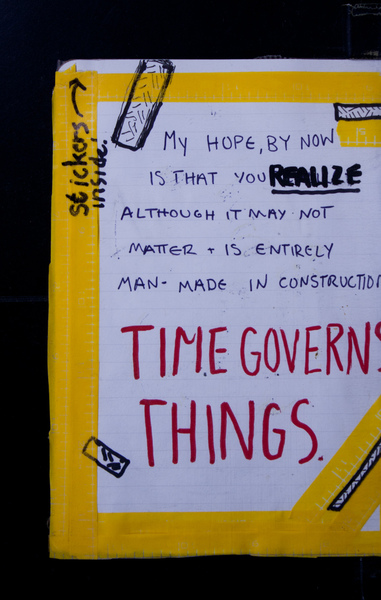 stickers
inside.
MY HOPE, BY NOW
IS THAT YOU REALIZE
ALTHOUGH IT MAY NOT
MATTER + IS ENTIRELY
MAN-MADE IN CONSTRUCTION
TIME GOVERNS
THINGS.